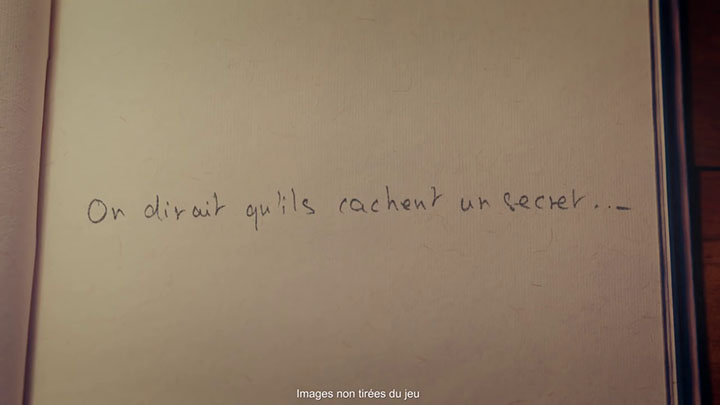 On dirait qu'ils cachent un secret...
Images non tirées du jeu